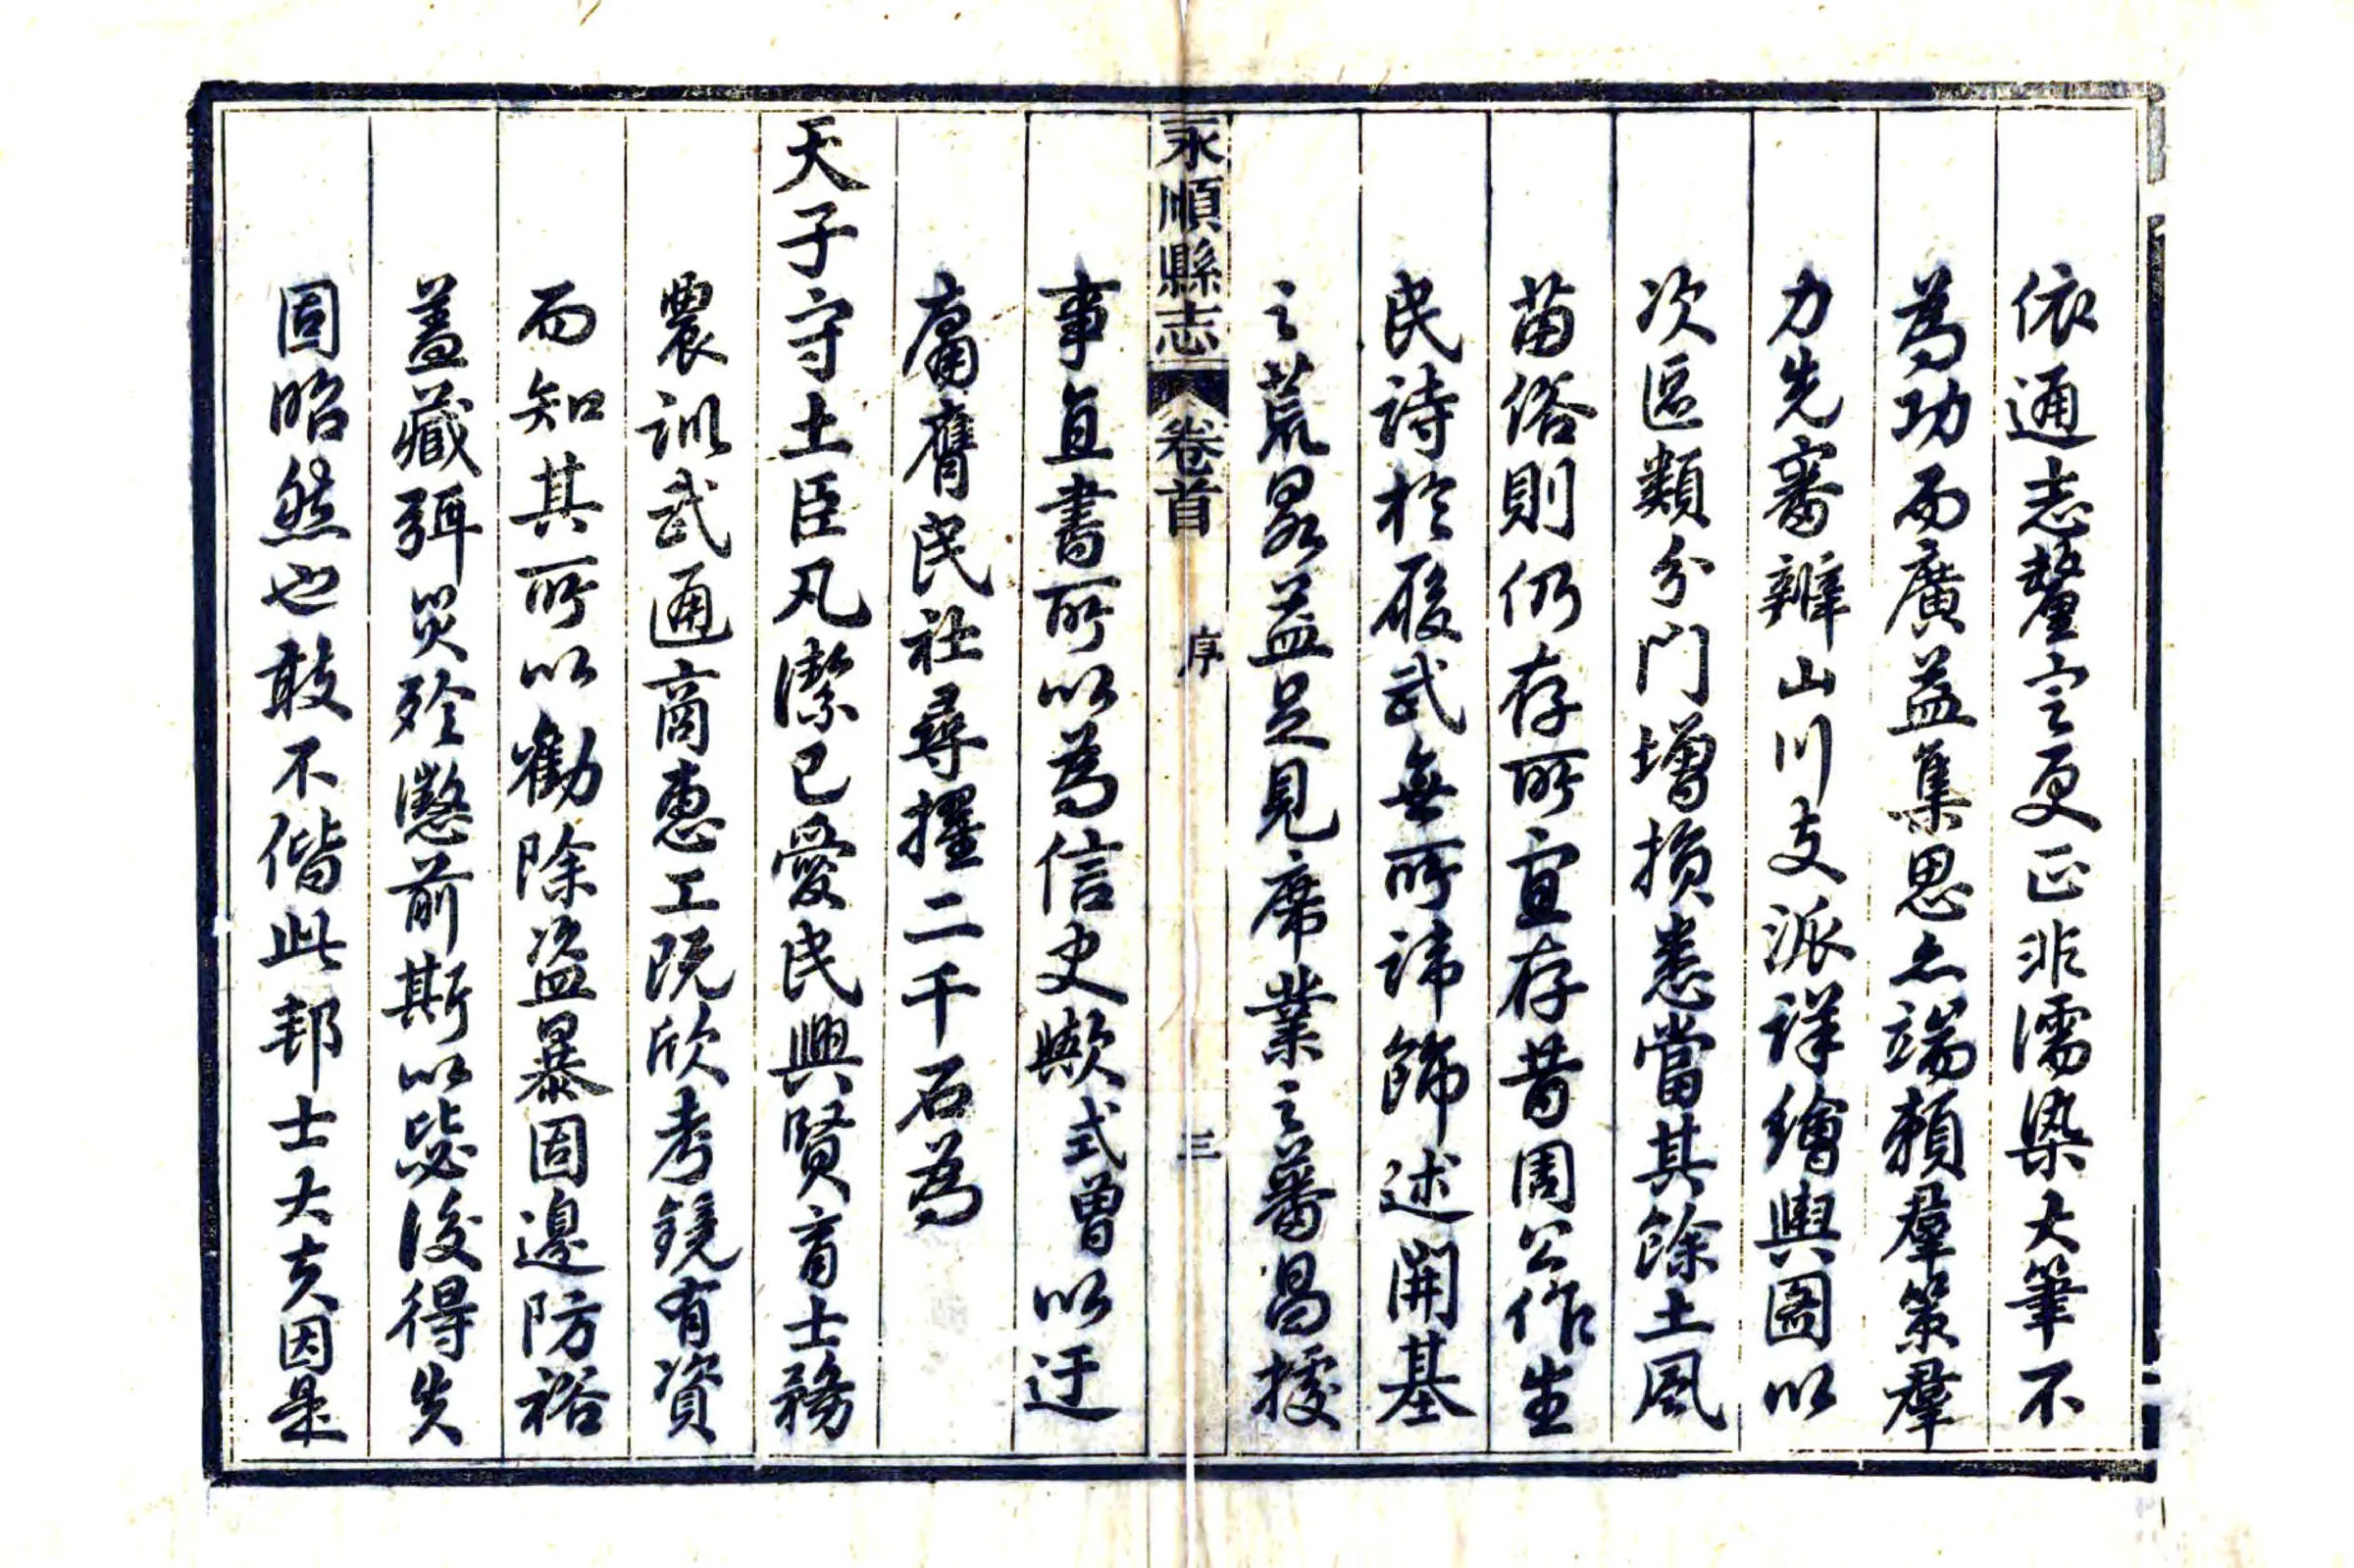 依通志釐定更正非濡染大筆不
為功而廣益集思亦端賴羣策羣
力先審辨山川支派詳繪輿圖以
次區類分門增損悉當其餘土風
苗俗則仍存所宜存昔周公作生
民詩於履武無所諱飾述開基
之荒畧益足見席業之蕃昌援
永順縣志
卷首
序
三
事直書所以為信史歟式曾以迂
庸膺民社尋擢二千石為
天子守土臣凡潔己愛民興賢育士務
農訓武通商惠工既欣考鏡有資
而知其所以勸除盜暴固邊防裕
蓋藏弭災殄懲前斯以毖後得失
固昭然也敢不偕此邦士大夫因是